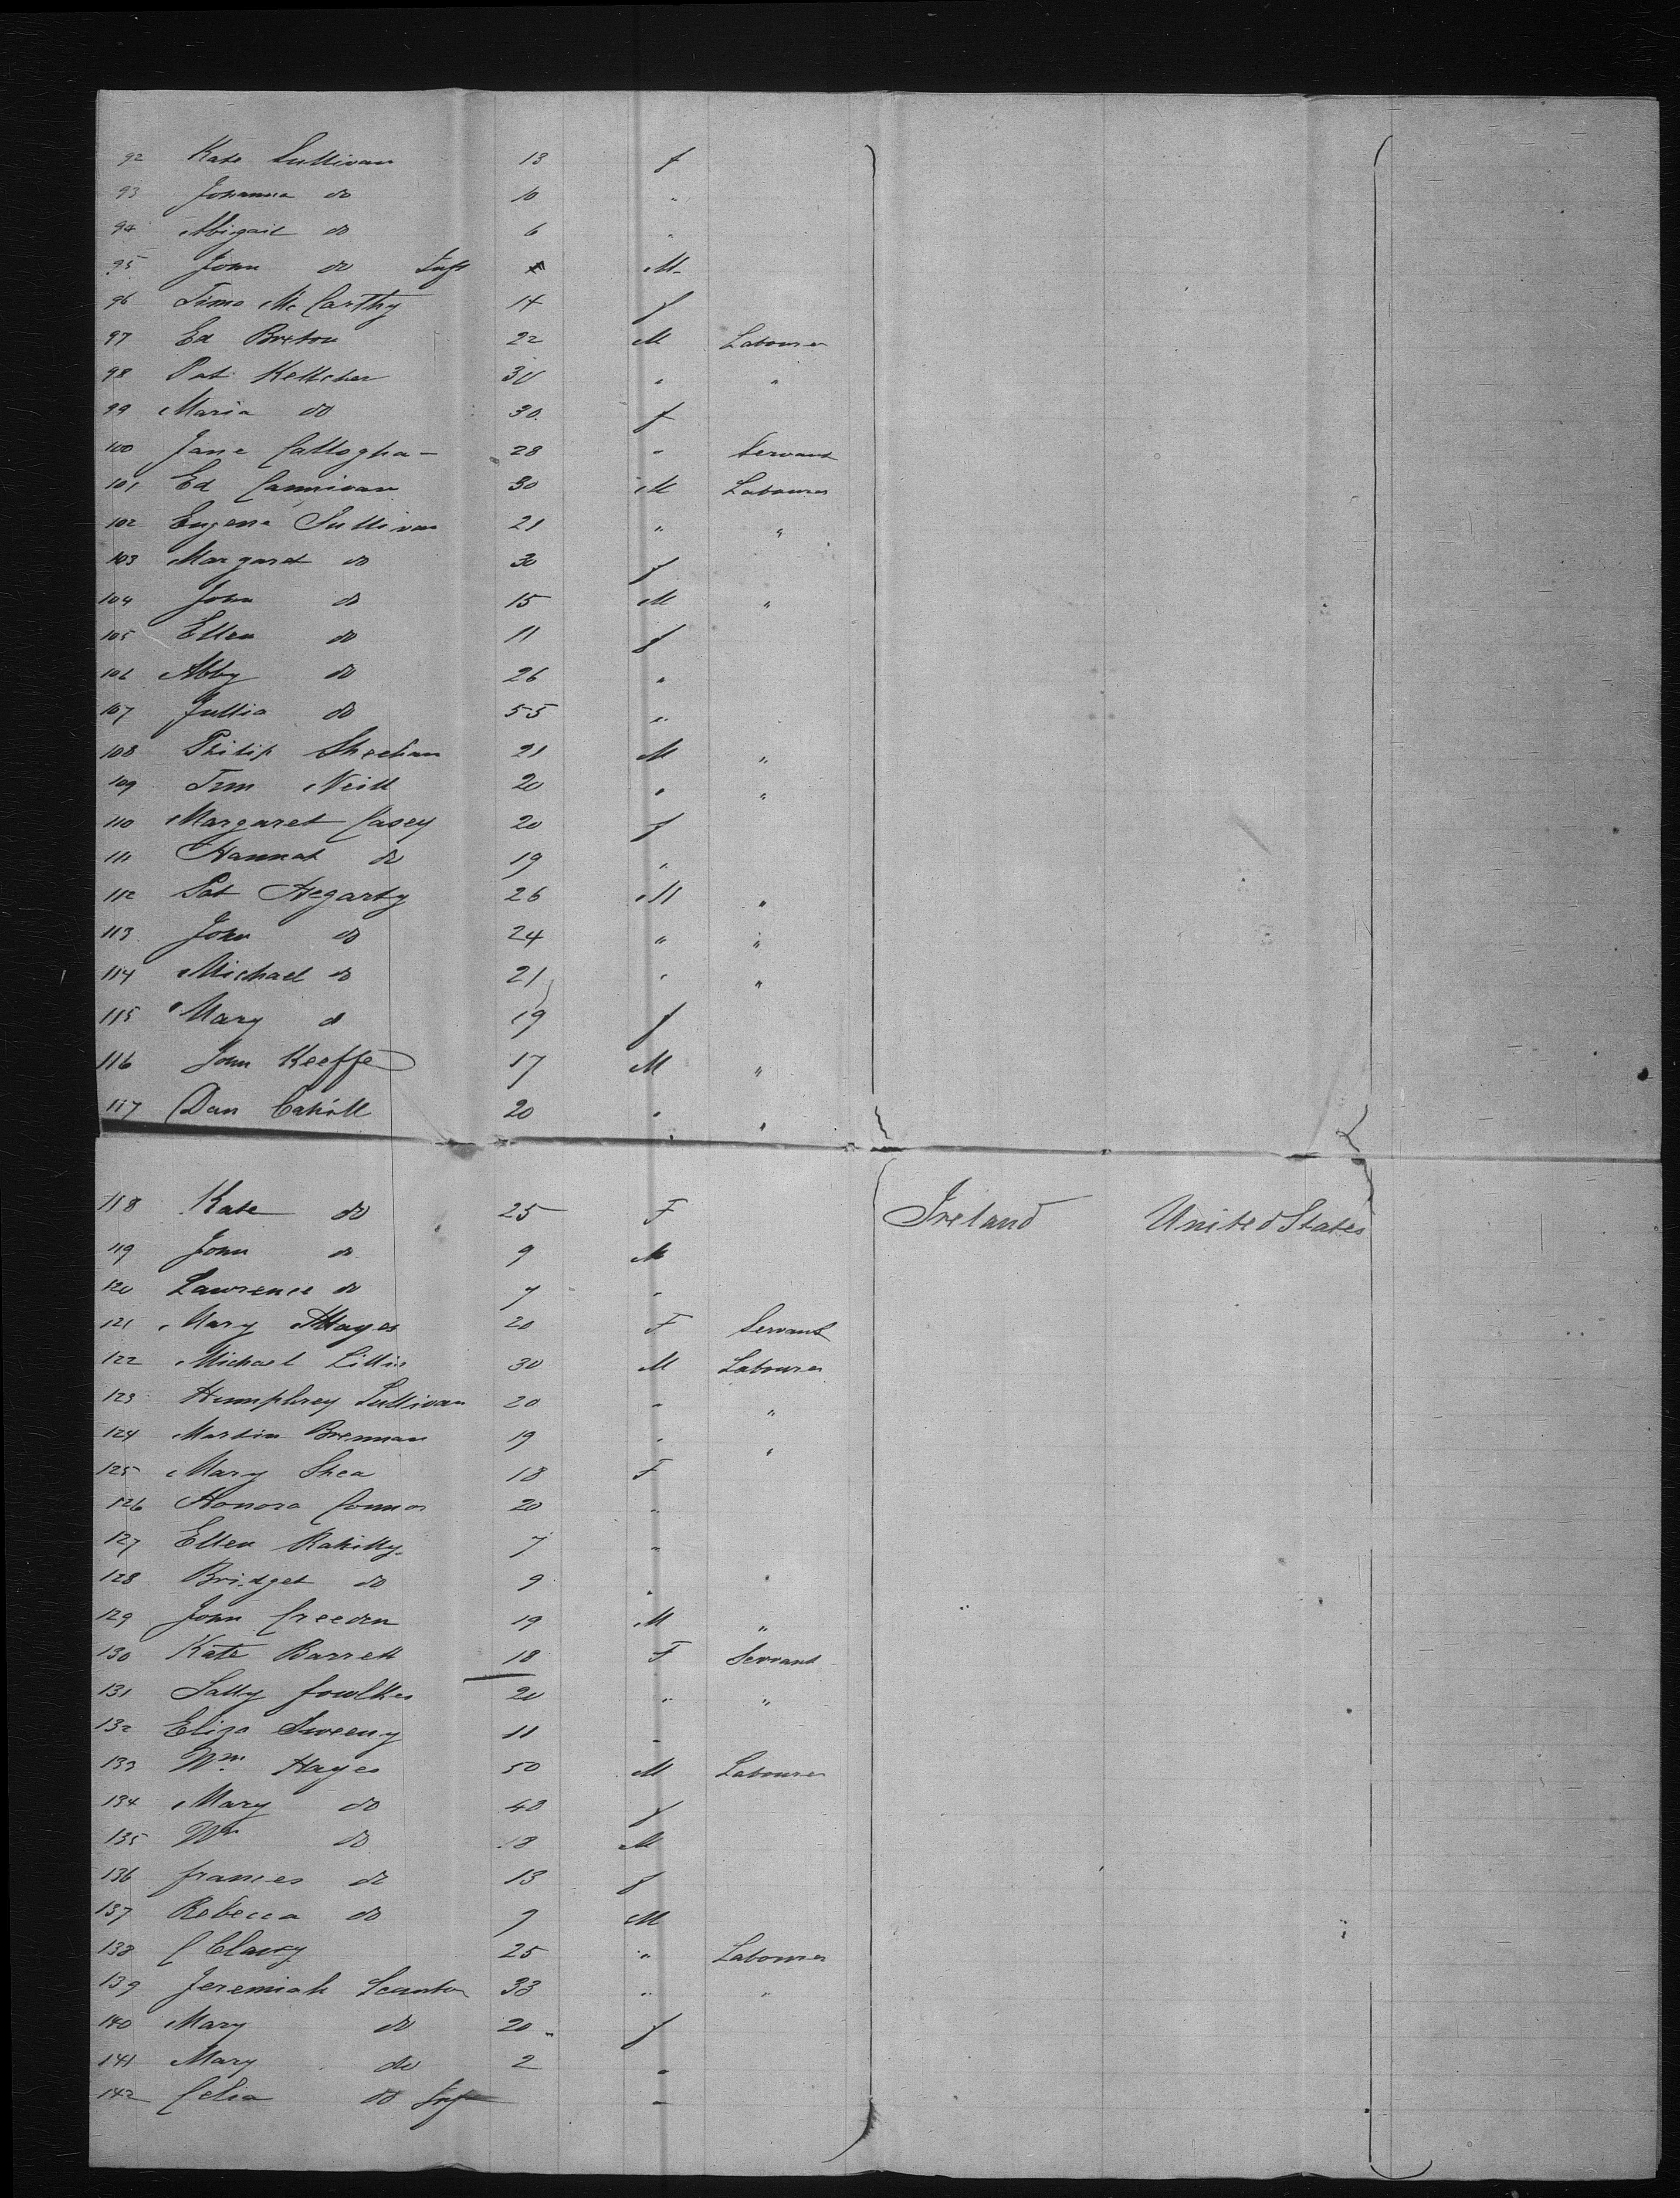 92 Kate Sullivan 13 f
93 Johanna do 10 "
94 Abigail do 6 "
95 John do Inft M
96 Timo McCarthy 14 f
97 Ed Breton 22 M Labourer
98 Pat Kelleher 30 " "
99 Maria do 30 f
100 Jane Callogha- 28 " Servant
101 Ed Cannivan 30 M Labourer
102 Eugene Sullivan 21 " "
103 Margaret do 30 f
104 John do 15 M "
105 Ellen do 11 f
106 Abby do 26 "
107 Jullia do 55 "
108 Philip Sheehan 21 M "
109 Tim Neill 20 " "
110 Margaret Casey 20 f
111 Hannah do 19 "
112 Pat Hegarty 26 M "
113 John do 24 " "
114 Michael do 21 " "
115 Mary do 19 f
116 John Keeffe 17 M "
117 Dan Cahill 20 " "
118 Kate do 25 F Ireland United States
119 John do 9 M
120 Lawrence do 7 "
121 Mary Hayes 20 F Servant
122 Michael Lillis 30 M Labourer
123 Humphrey Sullivan 20 " "
124 Martin Brennan 19 " "
125 Mary Shea 18 F
126 Honora Connor 20 "
127 Ellen Rahilly 7 "
128 Bridget do 9 " "
129 John Creeden 19 M "
130 Kate Barrett 18 F Servant
131 Sally foulkes 20 " "
132 Eliza Sweeny 11 "
133 Wm Hayes 50 M Labourer
134 Mary do 40 f
135 Wm do 18 M
136 frances do 13 f
137 Rebecca do 9 M
138 C Clancy 25 " Labourer
139 Jeremiah Scanlon 33 " "
140 Mary do 20 f
141 Mary do 2 "
142 Celia do Inft "